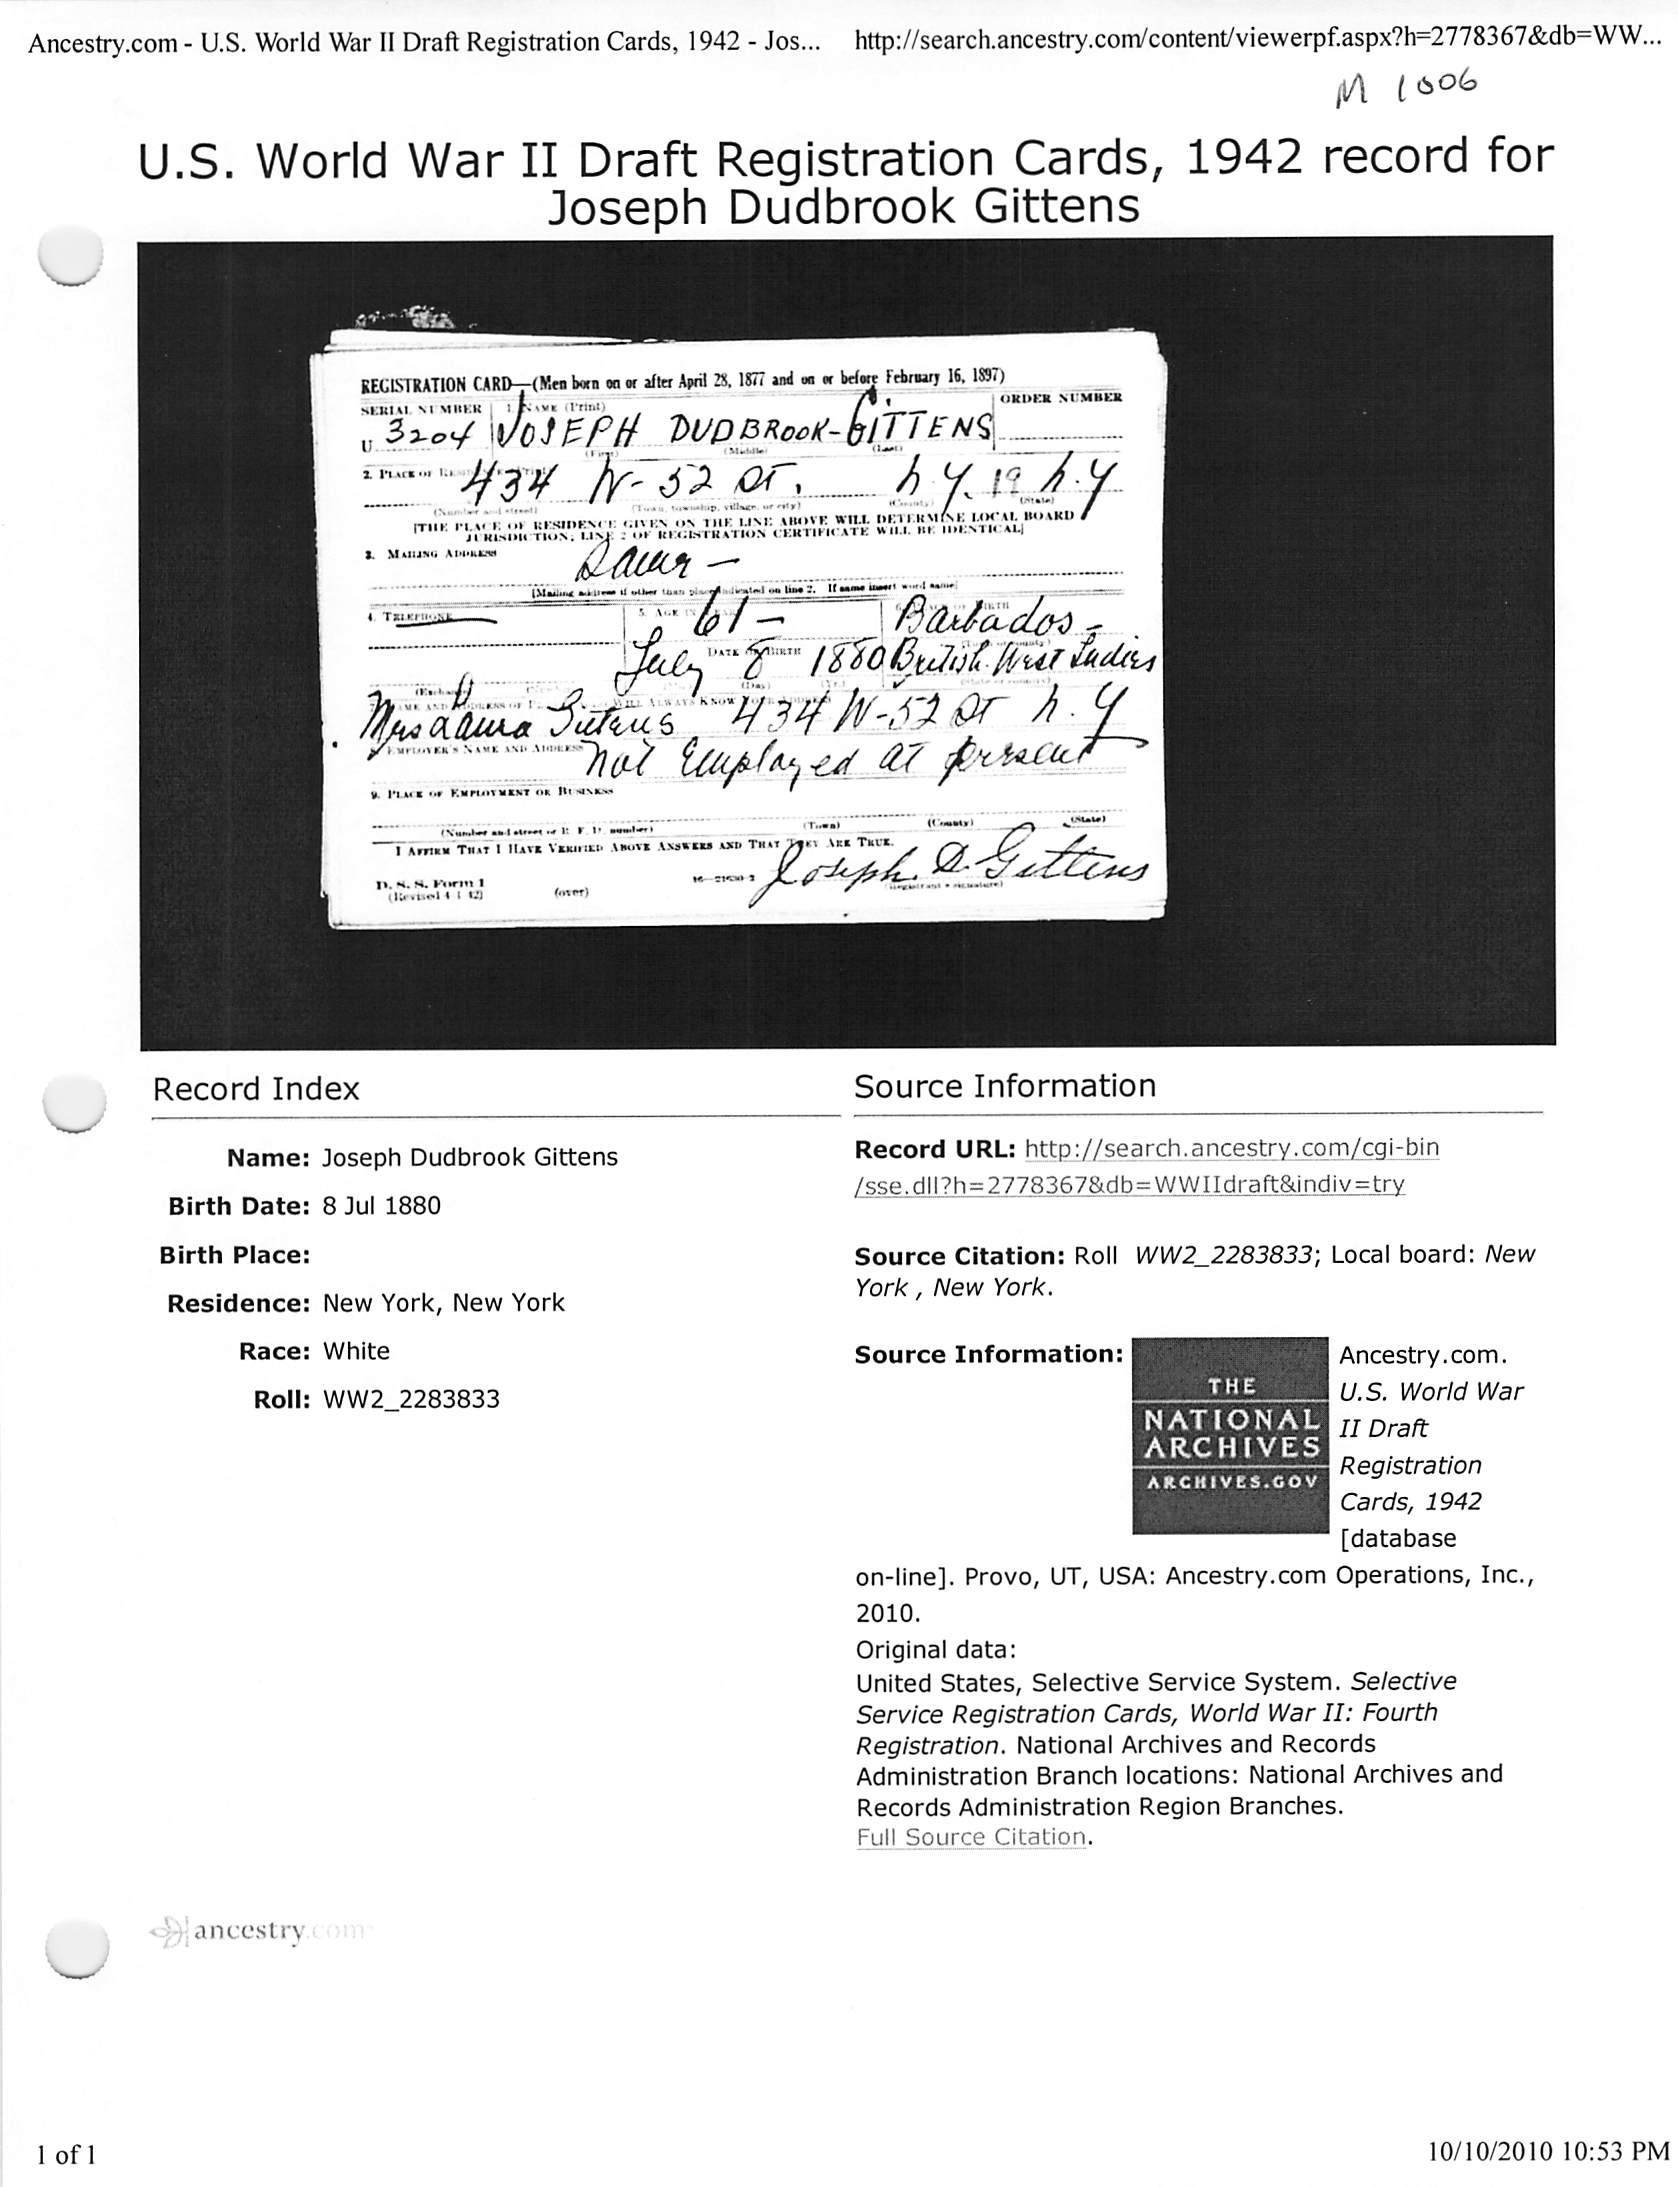 Ancestry.com - U.S. World War II Draft Registration Cards, 1942 - Jos... http://search.ancestry.com/content/viewerpf.aspx?h=2778367&db=WW...
M 1006
U.S. World War II Draft Registration Cards, 1942 record for
Joseph Dudbrook Gittens
REGISTRATION CARD—(Men born on or after April 28, 1877 and on or before February 16, 1897)
SERIAL NUMBER 1. NAME (Print) ORDER NUMBER
U 3204 JOSEPH DUDBROOK-GITTENS
(First) (Middle) (Last)
2. PLACE OF
434 W-52 ST. N.Y. 19 N.Y
(Number and street) (Town, township, village, or city) (County) (State)
[THE PLACE OF RESIDENCE GIVEN ON THE LINE ABOVE WILL DETERMINE LOCAL BOARD
JURISDICTION; LINE 2 OF REGISTRATION CERTIFICATE WILL BE IDENTICAL]
3. MAILING ADDRESS
Same -
[Mailing address if other than place indicated on line 2. If same insert word same]
4. TELEPHONE 5. AGE IN 61 - BIRTH Barbados -
DATE OF BIRTH
July 8 1880 British West Indies
(Day) (Yr.)
NAME AND ADDRESS OF WILL ALWAYS KNOW YOUR ADDRESS
Mrs Laura Gittens 434 W-52 ST N.Y
EMPLOYER'S NAME AND ADDRESS
Not Employed at present
9. PLACE OF EMPLOYMENT OR BUSINESS
(Number and street or R. F. D. number) (Town) (County) (State)
I AFFIRM THAT I HAVE VERIFIED ABOVE ANSWERS AND THAT THEY ARE TRUE.
D. S. S. Form 1 16—21630-2 Joseph D. Gittens
(Revised 4-1-42) (over) (Registrant's signature)
Record Index
Name: Joseph Dudbrook Gittens
Birth Date: 8 Jul 1880
Birth Place:
Residence: New York, New York
Race: White
Roll: WW2_2283833
Source Information
Record URL: http://search.ancestry.com/cgi-bin
/sse.dll?h=2778367&db=WWIIdraft&indiv=try
Source Citation: Roll WW2_2283833; Local board: New
York , New York.
Source Information:
THE
NATIONAL
ARCHIVES
ARCHIVES.GOV
Ancestry.com.
U.S. World War
II Draft
Registration
Cards, 1942
[database
on-line]. Provo, UT, USA: Ancestry.com Operations, Inc.,
2010.
Original data:
United States, Selective Service System. Selective
Service Registration Cards, World War II: Fourth
Registration. National Archives and Records
Administration Branch locations: National Archives and
Records Administration Region Branches.
Full Source Citation.
ancestry.com
1 of 1 10/10/2010 10:53 PM